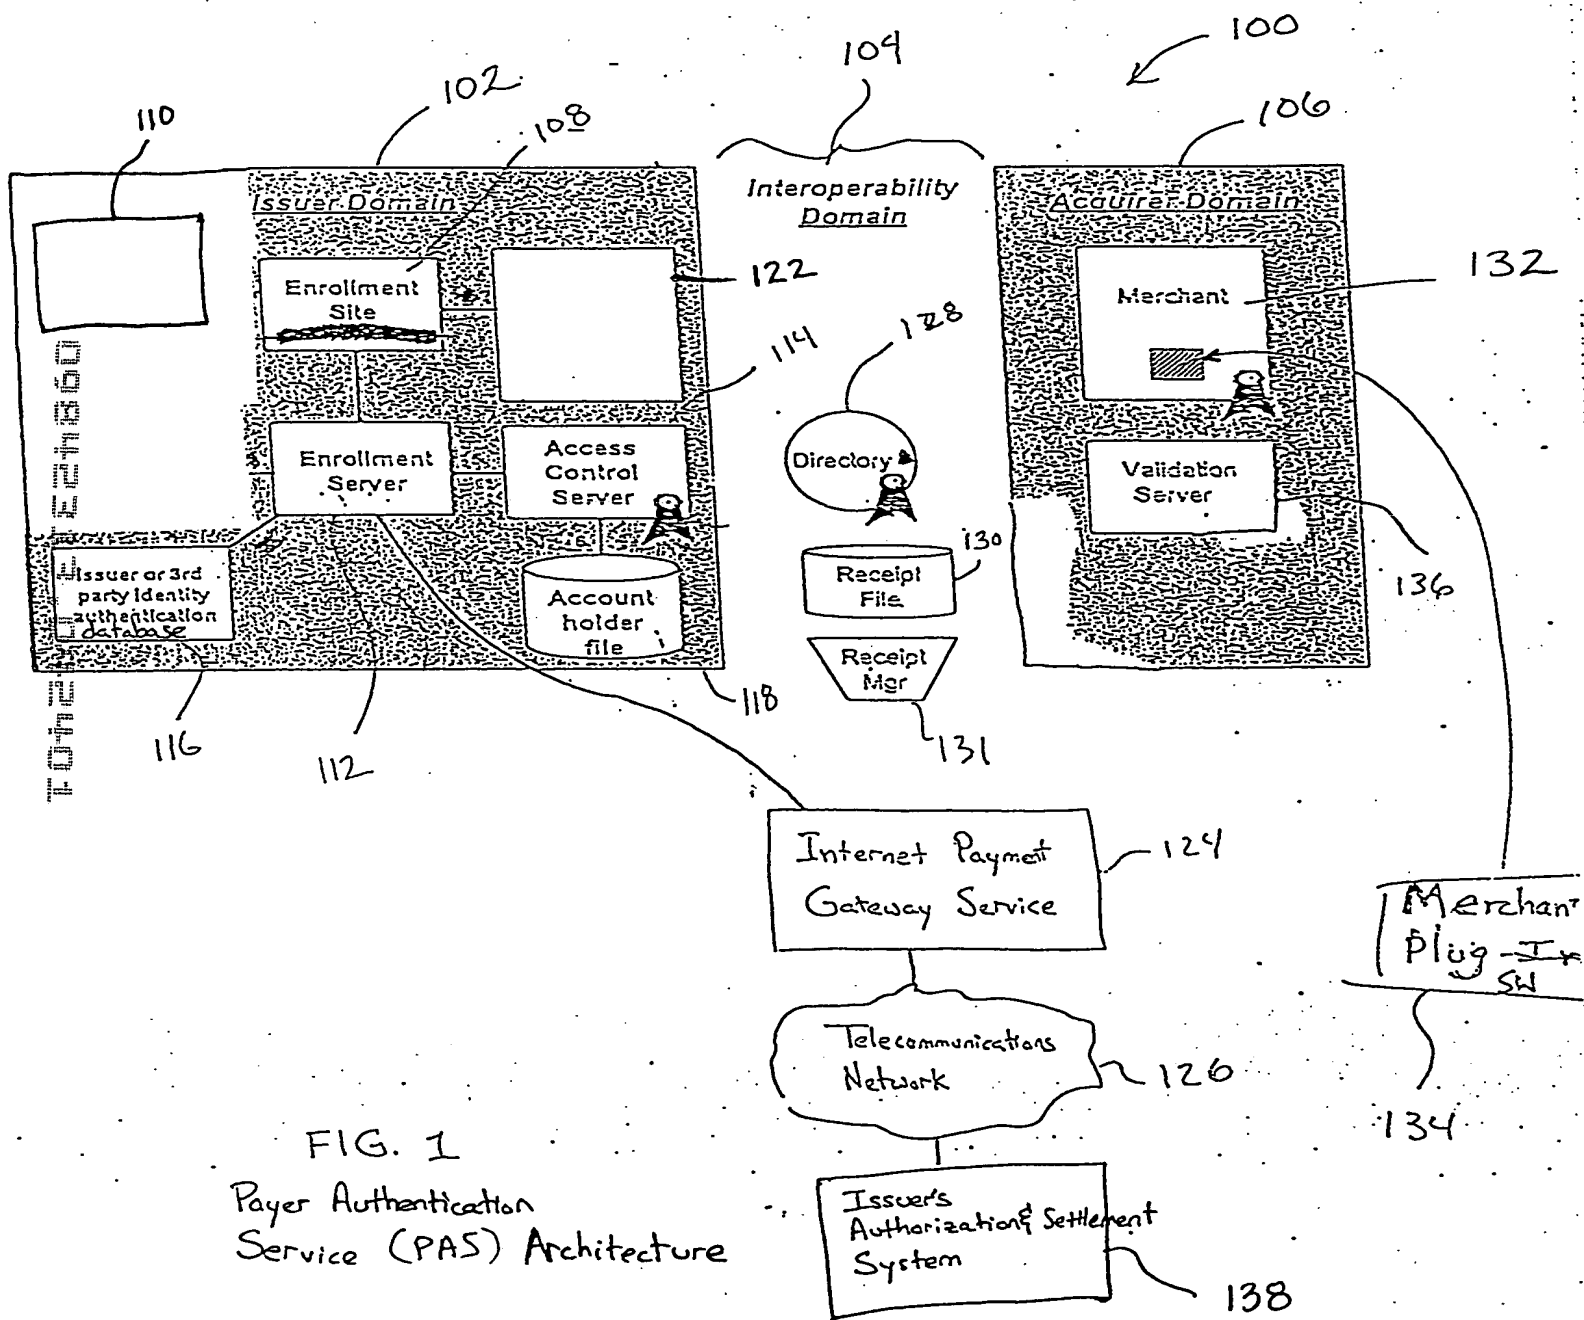 100
104
102
106
110
108
Issuer Domain
Interoperability
Domain
Acquirer Domain
Enrollment
Site
122
Merchant
132
128
114
Enrollment
Server
Access
Control
Server
Directory
Validation
Server
136
Issuer or 3rd
party identity
authentication
database
Account
holder
file
Receipt
File
130
Receipt
Mgr
131
118
116
112
Internet Payment
Gateway Service
124
Merchant
Plug-In
SW
134
Telecommunications
Network
126
Issuer's
Authorization & Settlement
System
138
FIG. 1
Payer Authentication
Service (PAS) Architecture